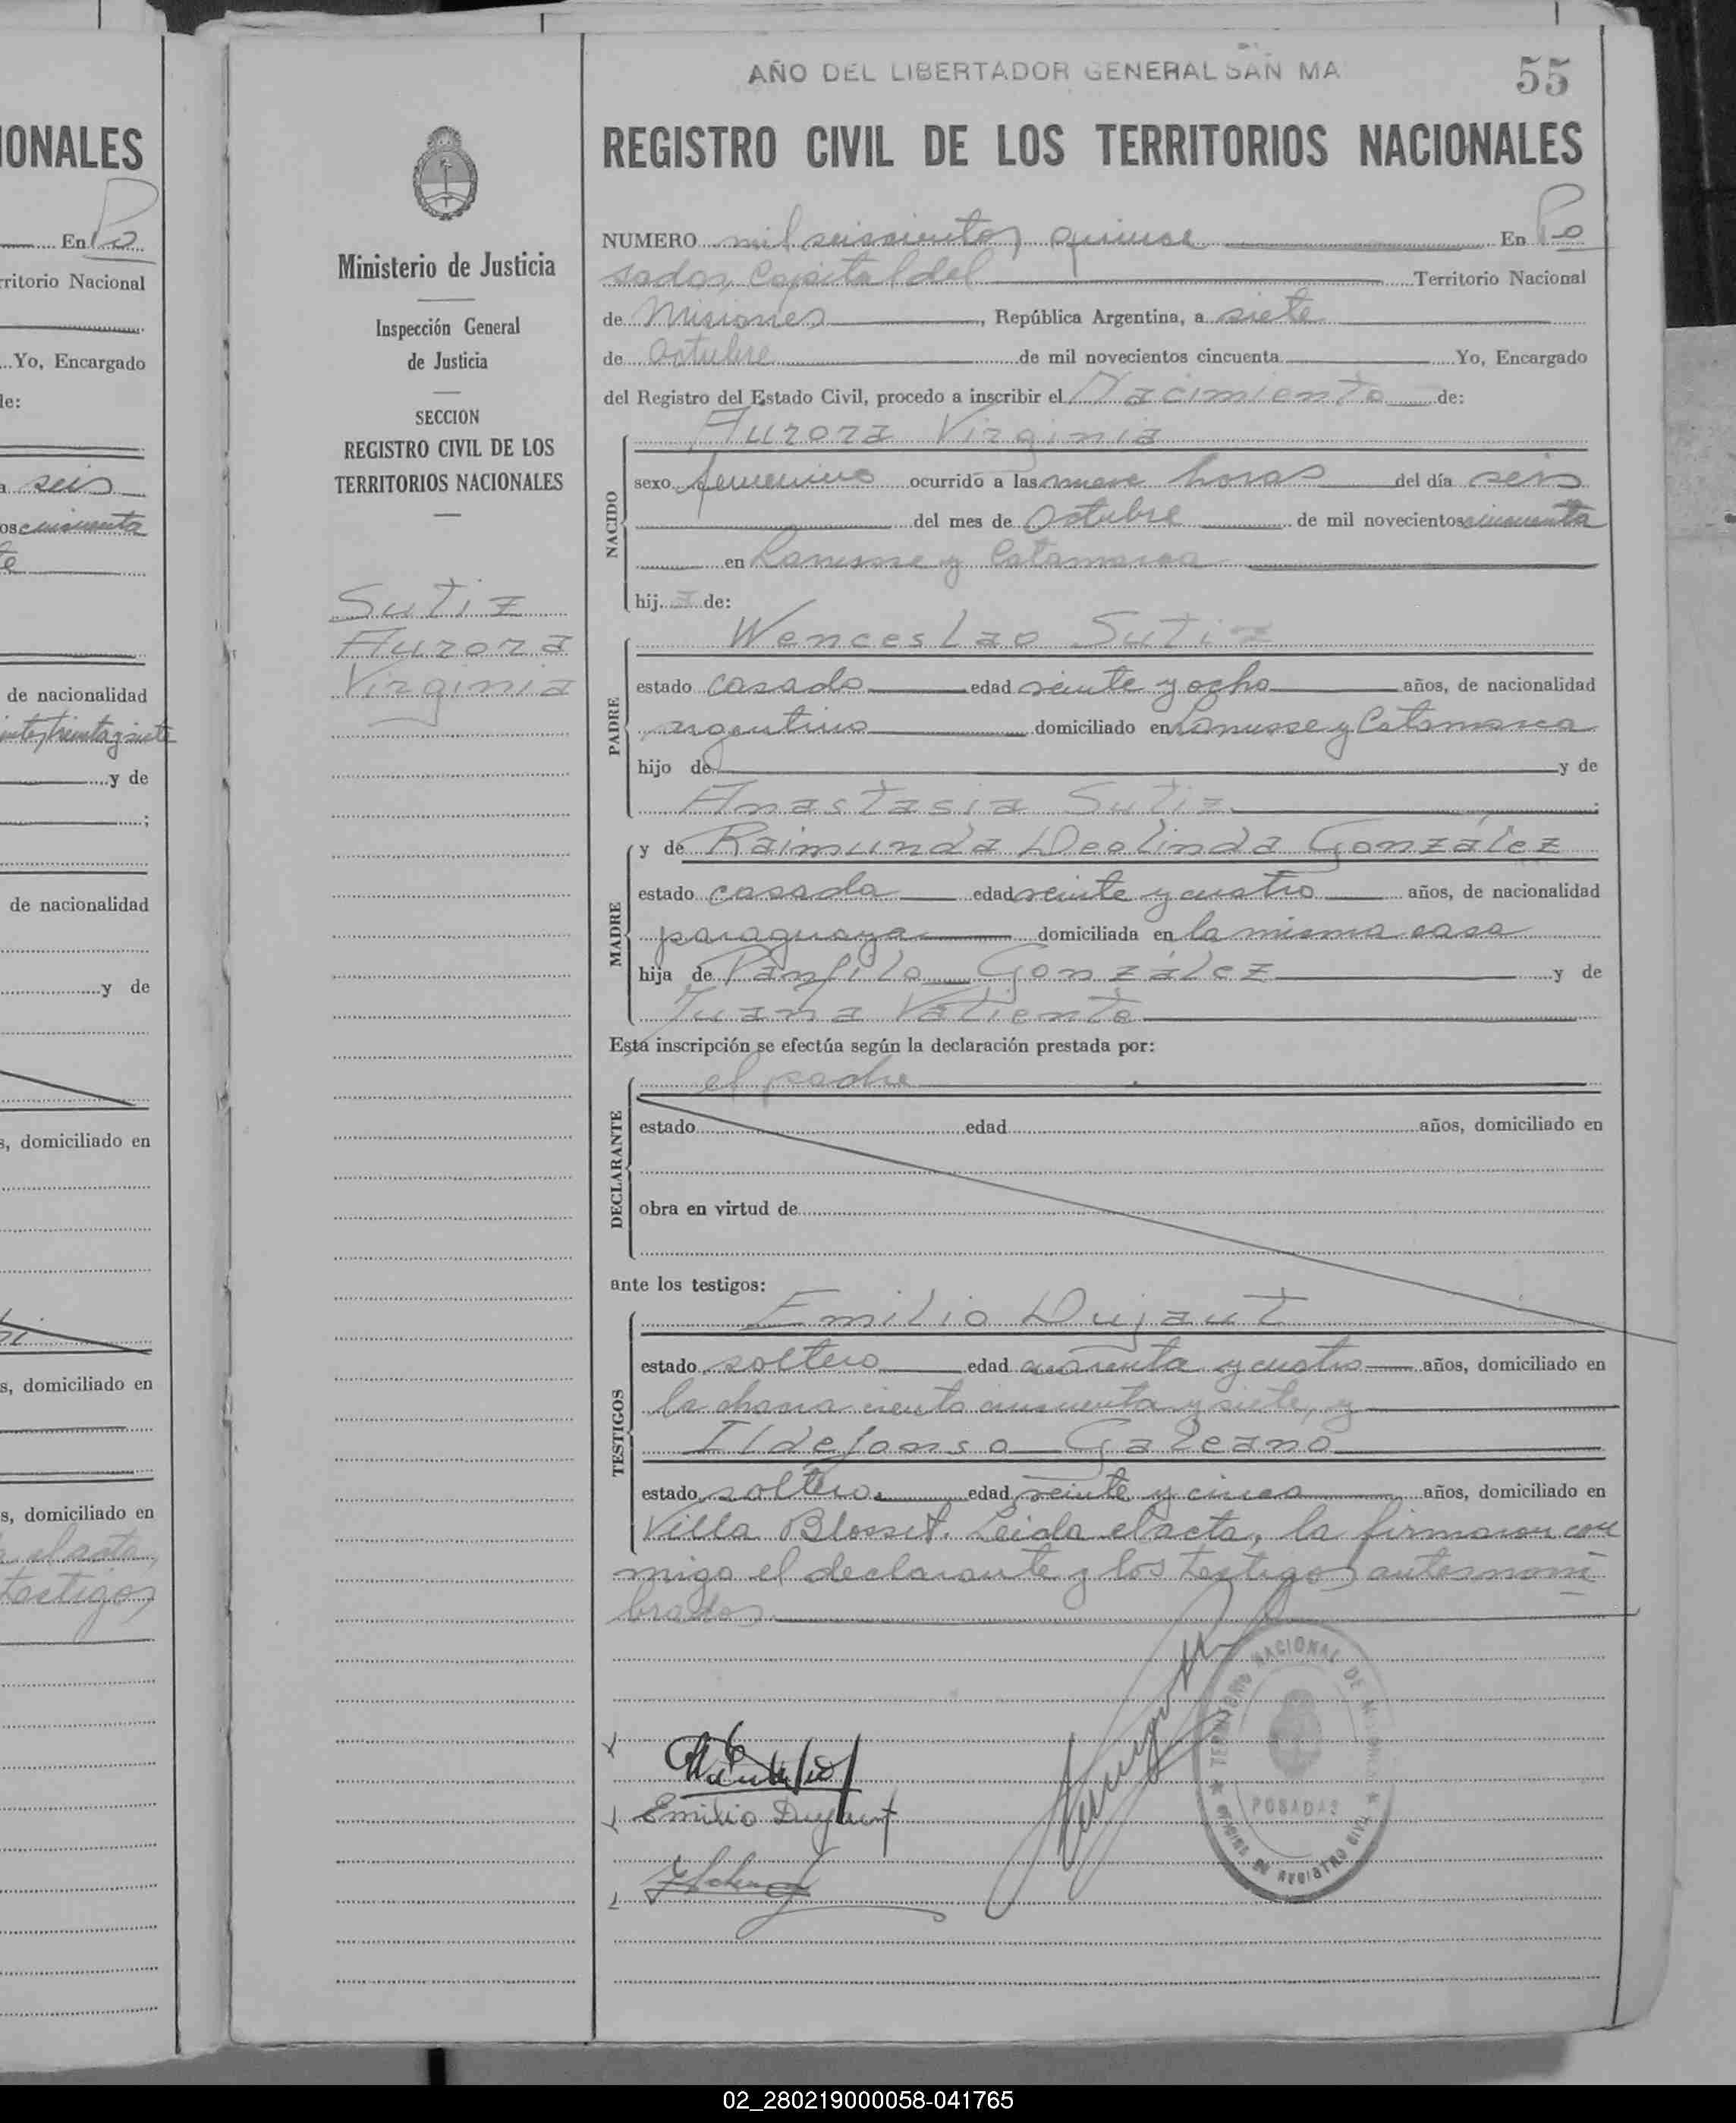 AÑO DEL LIBERTADOR GENERAL SAN MA
55
IONALES
En Po
rritorio Nacional
Yo, Encargado
de:
a seis
os cincuenta
te
de nacionalidad
treinta y siete
y de
de nacionalidad
y de
s, domiciliado en
s, domiciliado en
s, domiciliado en
el acta,
testigos
Ministerio de Justicia
Inspección General
de Justicia
SECCION
REGISTRO CIVIL DE LOS
TERRITORIOS NACIONALES
Sutiz
Aurora
Virginia
REGISTRO CIVIL DE LOS TERRITORIOS NACIONALES
NUMERO mil seiscientos quince En Po
sadas, Capital del Territorio Nacional
de Misiones, República Argentina, a siete
de Octubre de mil novecientos cincuenta Yo, Encargado
del Registro del Estado Civil, procedo a inscribir el Nacimiento de:
NACIDO
Aurora Virginia
sexo femenino ocurrido a las nueve horas del día seis
del mes de Octubre de mil novecientos cincuenta
en Lanusse y Catamarca
hija de:
PADRE
Wenceslao Sutiz
estado casado edad veinte y ocho años, de nacionalidad
argentino domiciliado en Lanusse y Catamarca
hijo de y de
Anastasia Sutiz
MADRE
y de Raimunda Deolinda González
estado casada edad veinte y cuatro años, de nacionalidad
paraguaya domiciliada en la misma casa
hija de Pánfilo González y de
Juana Valiente
Esta inscripción se efectúa según la declaración prestada por:
DECLARANTE
el padre
estado edad años, domiciliado en
obra en virtud de
ante los testigos:
TESTIGOS
Emilio Dujaut
estado soltero edad cuarenta y cuatro años, domiciliado en
la chacra ciento cincuenta y siete, y
Ildefonso Galeano
estado soltero edad veinte y cinco años, domiciliado en
Villa Blosset. Leida el acta, la firmaron con
migo el declarante y los testigos antesnom
brados.
Emilio Dujaut
TERRITORIO NACIONAL DE MISIONES
POSADAS
OFICINA DE REGISTRO CIVIL
02_280219000058-041765